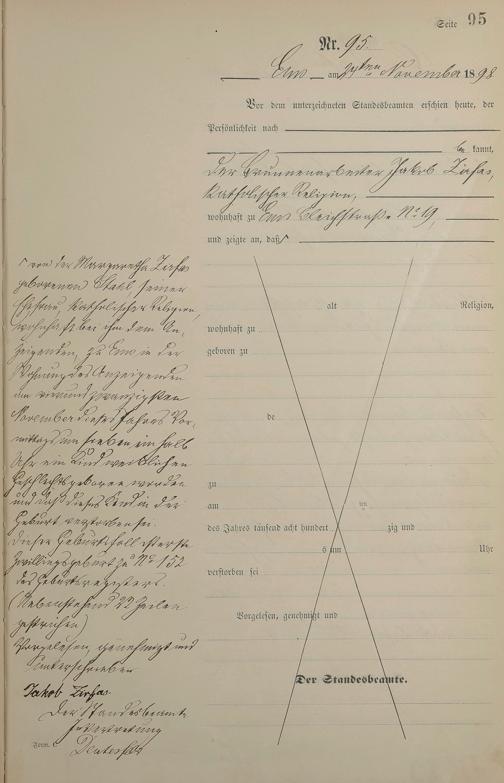 Seite 95
Nr. 95.
Ems am 24ten November 1898
Vor dem unterzeichneten Standesbeamten erschien heute, der
Persönlichkeit nach
be kannt,
der Brunnenarbeiter Jakob
katholischer Religion,
wohnhaft zu Ems Bleichstraße No 19,
und zeigte an, daß
von der Margaretha
geborenen Stahl, seiner
Ehefrau, katholischer Religion,
wohnhaft bei ihm dem An-
zeigenden, zu Ems in der
Wohnung des Anzeigenden
am vierundzwanzigsten
November dieses Jahres Vor-
mittags um sieben ein halb
Uhr ein Kind weiblichen
Geschlechts geboren worden
und daß dieses Kind in der
Geburt verstorben sei.
Dieser Geburtsfall ist erste
Zwillingsgeburt zu No 152
des Geburtsregisters.
(Nebenstehend 22 Zeilen
gestrichen)
Vorgelesen, genehmigt und
unterschrieben
Jakob
Der Standesbeamte
In Vertretung
Form. C
alt Religion,
wohnhaft zu
geboren zu
de
zu
am
des Jahres tausend acht hundert zig und
s um Uhr
verstorben sei
Vorgelesen, genehmigt und
Der Standesbeamte.